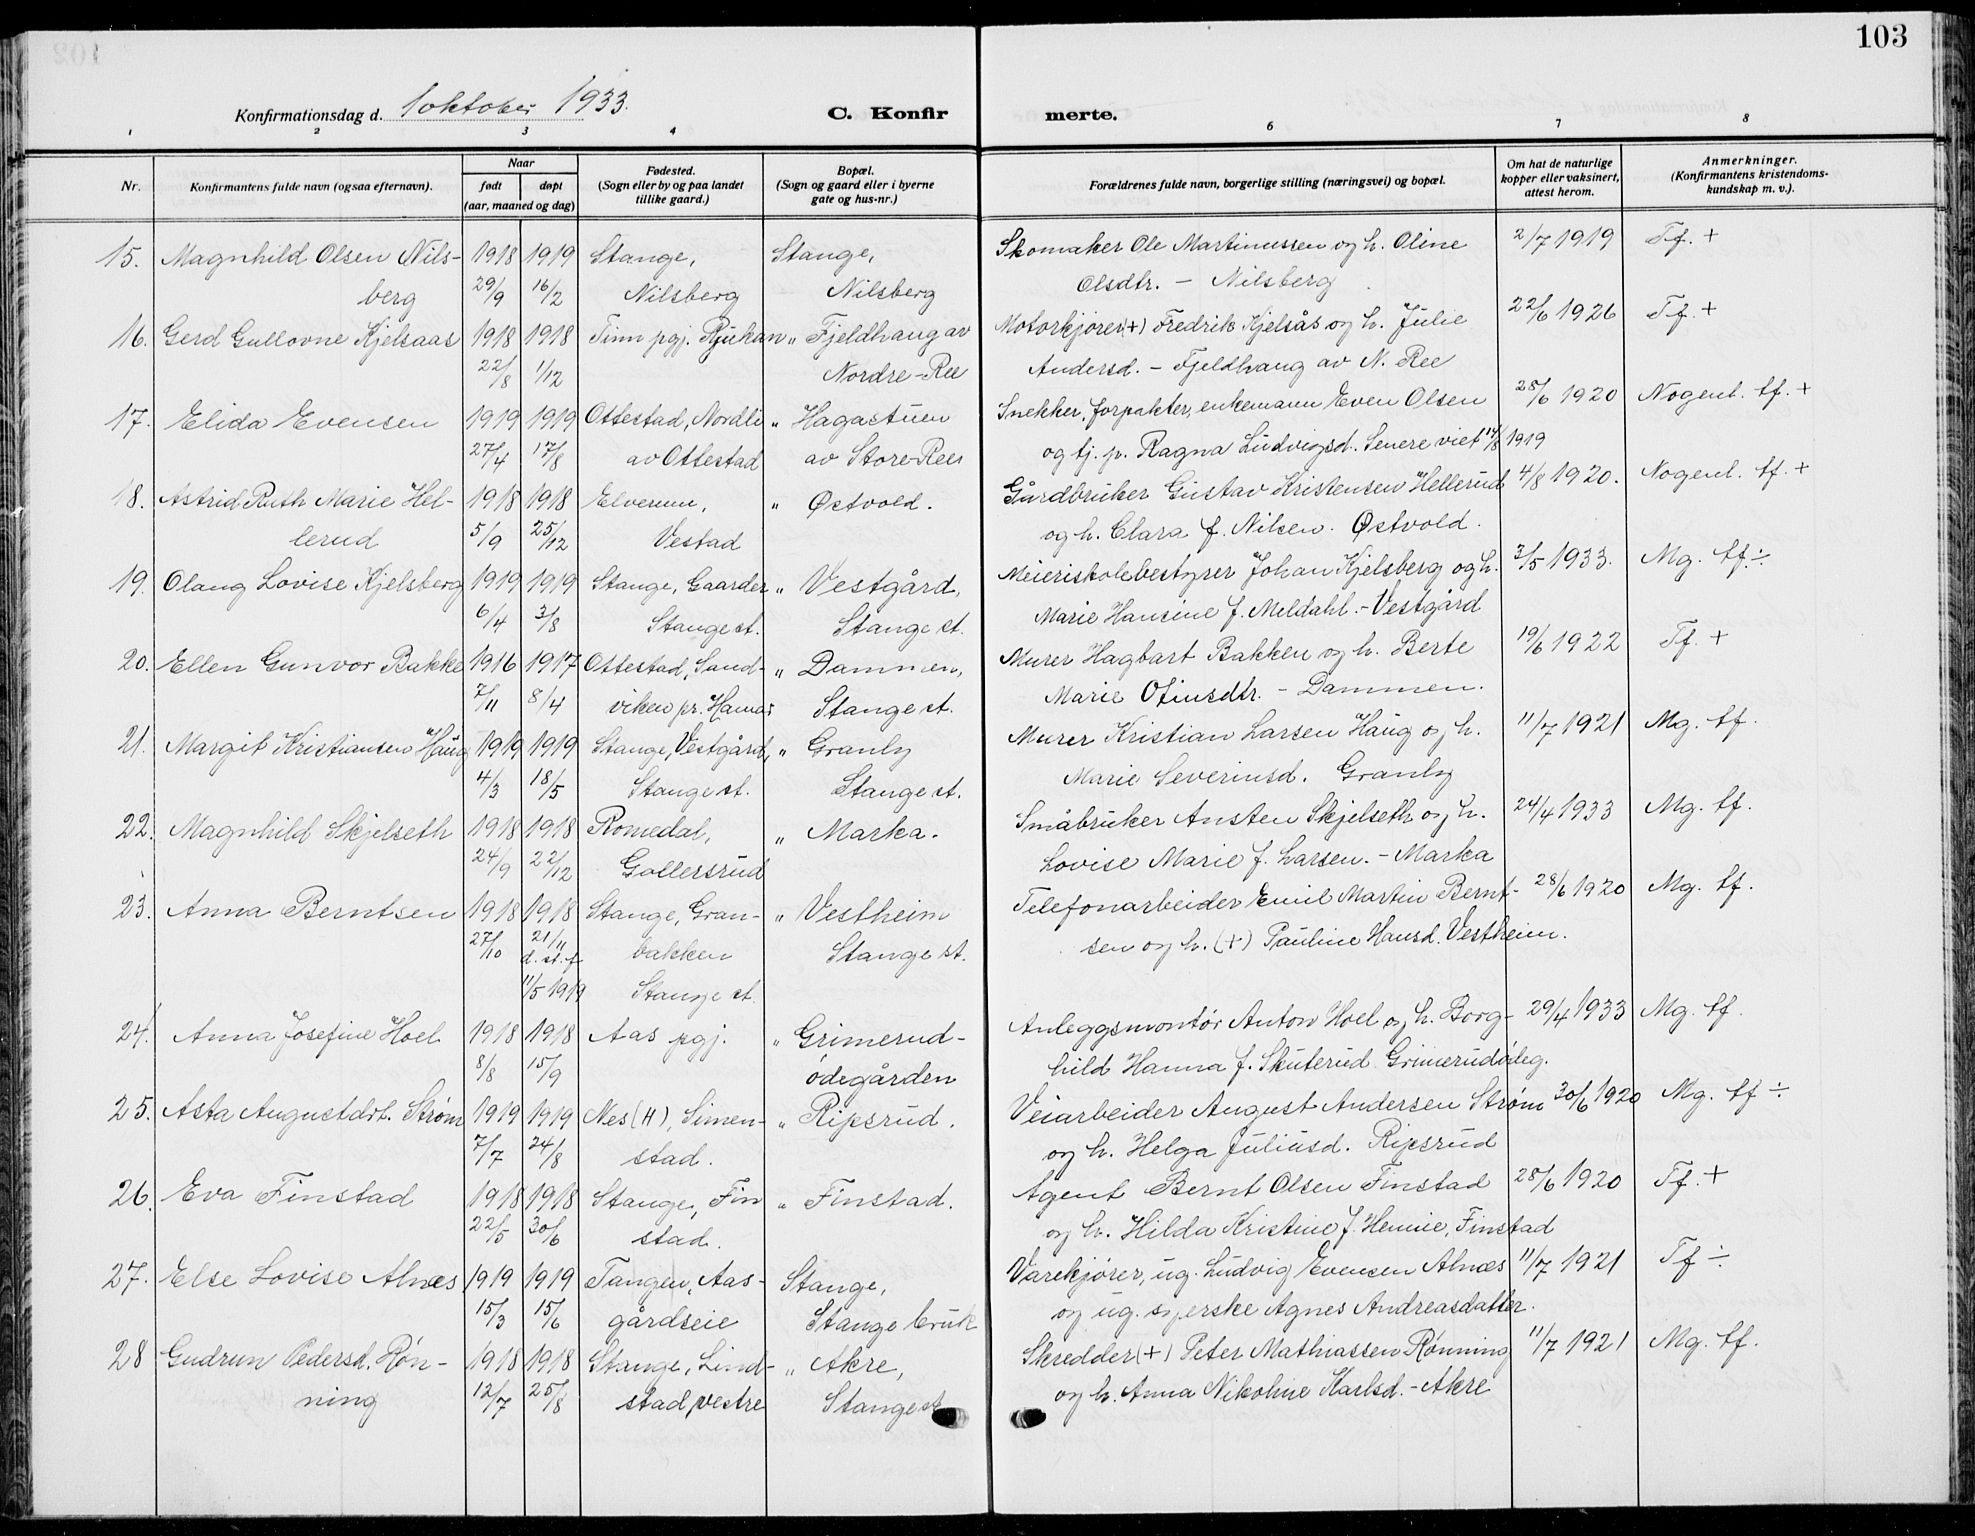 103
Konfirmationsdag d. 1 oktober 1933.
C. Konfirmerte.
1 2 3 4 6 7 8
Nr. Konfirmantens fulde navn (ogsaa efternavn). Naar født døpt (aar, maaned og dag) Fødested. (Sogn eller by og paa landet tillike gaard.) Bopæl. (Sogn og gaard eller i byerne gate og hus-nr.) Forældrenes fulde navn, borgerlige stilling (næringsvei) og bopæl. Om hat de naturlige kopper eller vaksinert, attest herom. Anmerkninger. (Konfirmantens kristendomskundskap m. v.).
15. Magnhild Olsen Nils- 1918 1919 Stange, Stange, Skomaker Ole Martinussen og h. Oline 2/7 1919 Tf. +
berg 29/9 16/2 Nilsberg Nilsberg Olsdtr. – Nilsberg
16. Gerd Gullovne Kjelsaas 1918 1918 Tinn pgj. Rjukan " Fjeldhaug av Motorkjører (+) Fredrik Kjelsås og h. Julie 22/6 1926 Tf. +
22/8 1/12 Nordre-Ree Andersd. – Fjeldhaug av N. Ree
17. Elida Evensen 1919 1919 Ottestad, Nordli " Hagastuen Snekker, forpakter, enkemann Even Olsen 28/6 1920 Nogenl. tf. +
27/4 17/8 av Ottestad av Store-Ree og tj. p. Ragna Ludvigsd. Senere viet 14/8 1919
18. Astrid Ruth Marie Hel- 1918 1918 Elverum, " Østvold. Gårdbruker Gustav Kristensen Hellerud 4/8 1920. Nogenl. tf. +
lerud 5/9 25/12 Vestad og h. Clara f. Nilsen. Østvold.
19. Olaug Lovise Kjelsberg 1919 1919 Stange, Gaarder " Vestgård, Meieriskolebestyrer Johan Kjelsberg og h. 3/5 1933. Mg. tf. ÷
6/4 3/8 Stange st. Stange st. Marie Hansine f. Meldahl. – Vestgård
20. Ellen Gunvor Bakke 1916 1917 Ottestad, Sand- " Dammen, Murer Hagbart Bakken og h. Berte 19/6 1922 Tf. +
7/11 8/4 viken pr. Hamar Stange st. Marie Otinsdtr. – Dammen.
21. Margit Kristiansen Haug 1919 1919 Stange, Vestgård, " Granly Murer Kristian Larsen Haug og h. 11/7 1921 Mg. tf.
4/3 18/5 Stange st. Stange st. Marie Severinsd. Granly
22. Magnhild Skjelseth 1918 1918 Romedal, " Marka. Småbruker Ansten Skjelseth og h. 24/4 1933 Mg. tf.
24/9 22/12 Gollersrud Lovise Marie f. Larsen. – Marka
23. Anna Berntsen 1918 1918 Stange, Gran- " Vestheim Telefonarbeider Emil Martin Bernt- 28/6 1920 Mg. tf.
27/10 21/11 d. st. f bakken Stange st. sen og h. (+) Pauline Hansd. Vestheim.
11/5 1919 Stange st.
24. Anna Josefine Hoel 1918 1918 Aas pgj. " Grimerud- Anleggsmontör Anton Hoel og h. Borg- 29/4 1933 Mg. tf.
8/8 15/9 ödegården hild Hanna f. Skuterud Grimerudödeg.
25. Asta Augustdtr. Strøm 1919 1919 Nes (H), Simen- " Ripsrud. Veiarbeider August Andersen Strøm 30/6 1920 Mg. tf ÷
7/7 24/8 stad. og h. Helga Juliusd. Ripsrud
26. Eva Finstad 1918 1918 Stange, Fin " Finstad. Agent Bernt Olsen Finstad 28/6 1920 Tf. +
22/5 30/6 stad. og h. Hilda Kristine f. Hennie, Finstad
27. Else Lovise Alnæs 1919 1919 Tangen, Aas- Stange, Varekjører, ug. Ludvig Evensen Alnæs 11/7 1921 Tf ÷
15/3 15/6 gårdseie Stange bruk og ug. syerske Agnes Andreasdatter.
28 Gudrun Pedersd. Røn- 1918 1918 Stange, Lind- " Akre, Skredder (+) Peter Mathiassen Rønning 11/7 1921 Mg. tf.
ning 12/7 25/8 stad vestre Stange st og h. Anna Nikoline Karlsd. – Akre